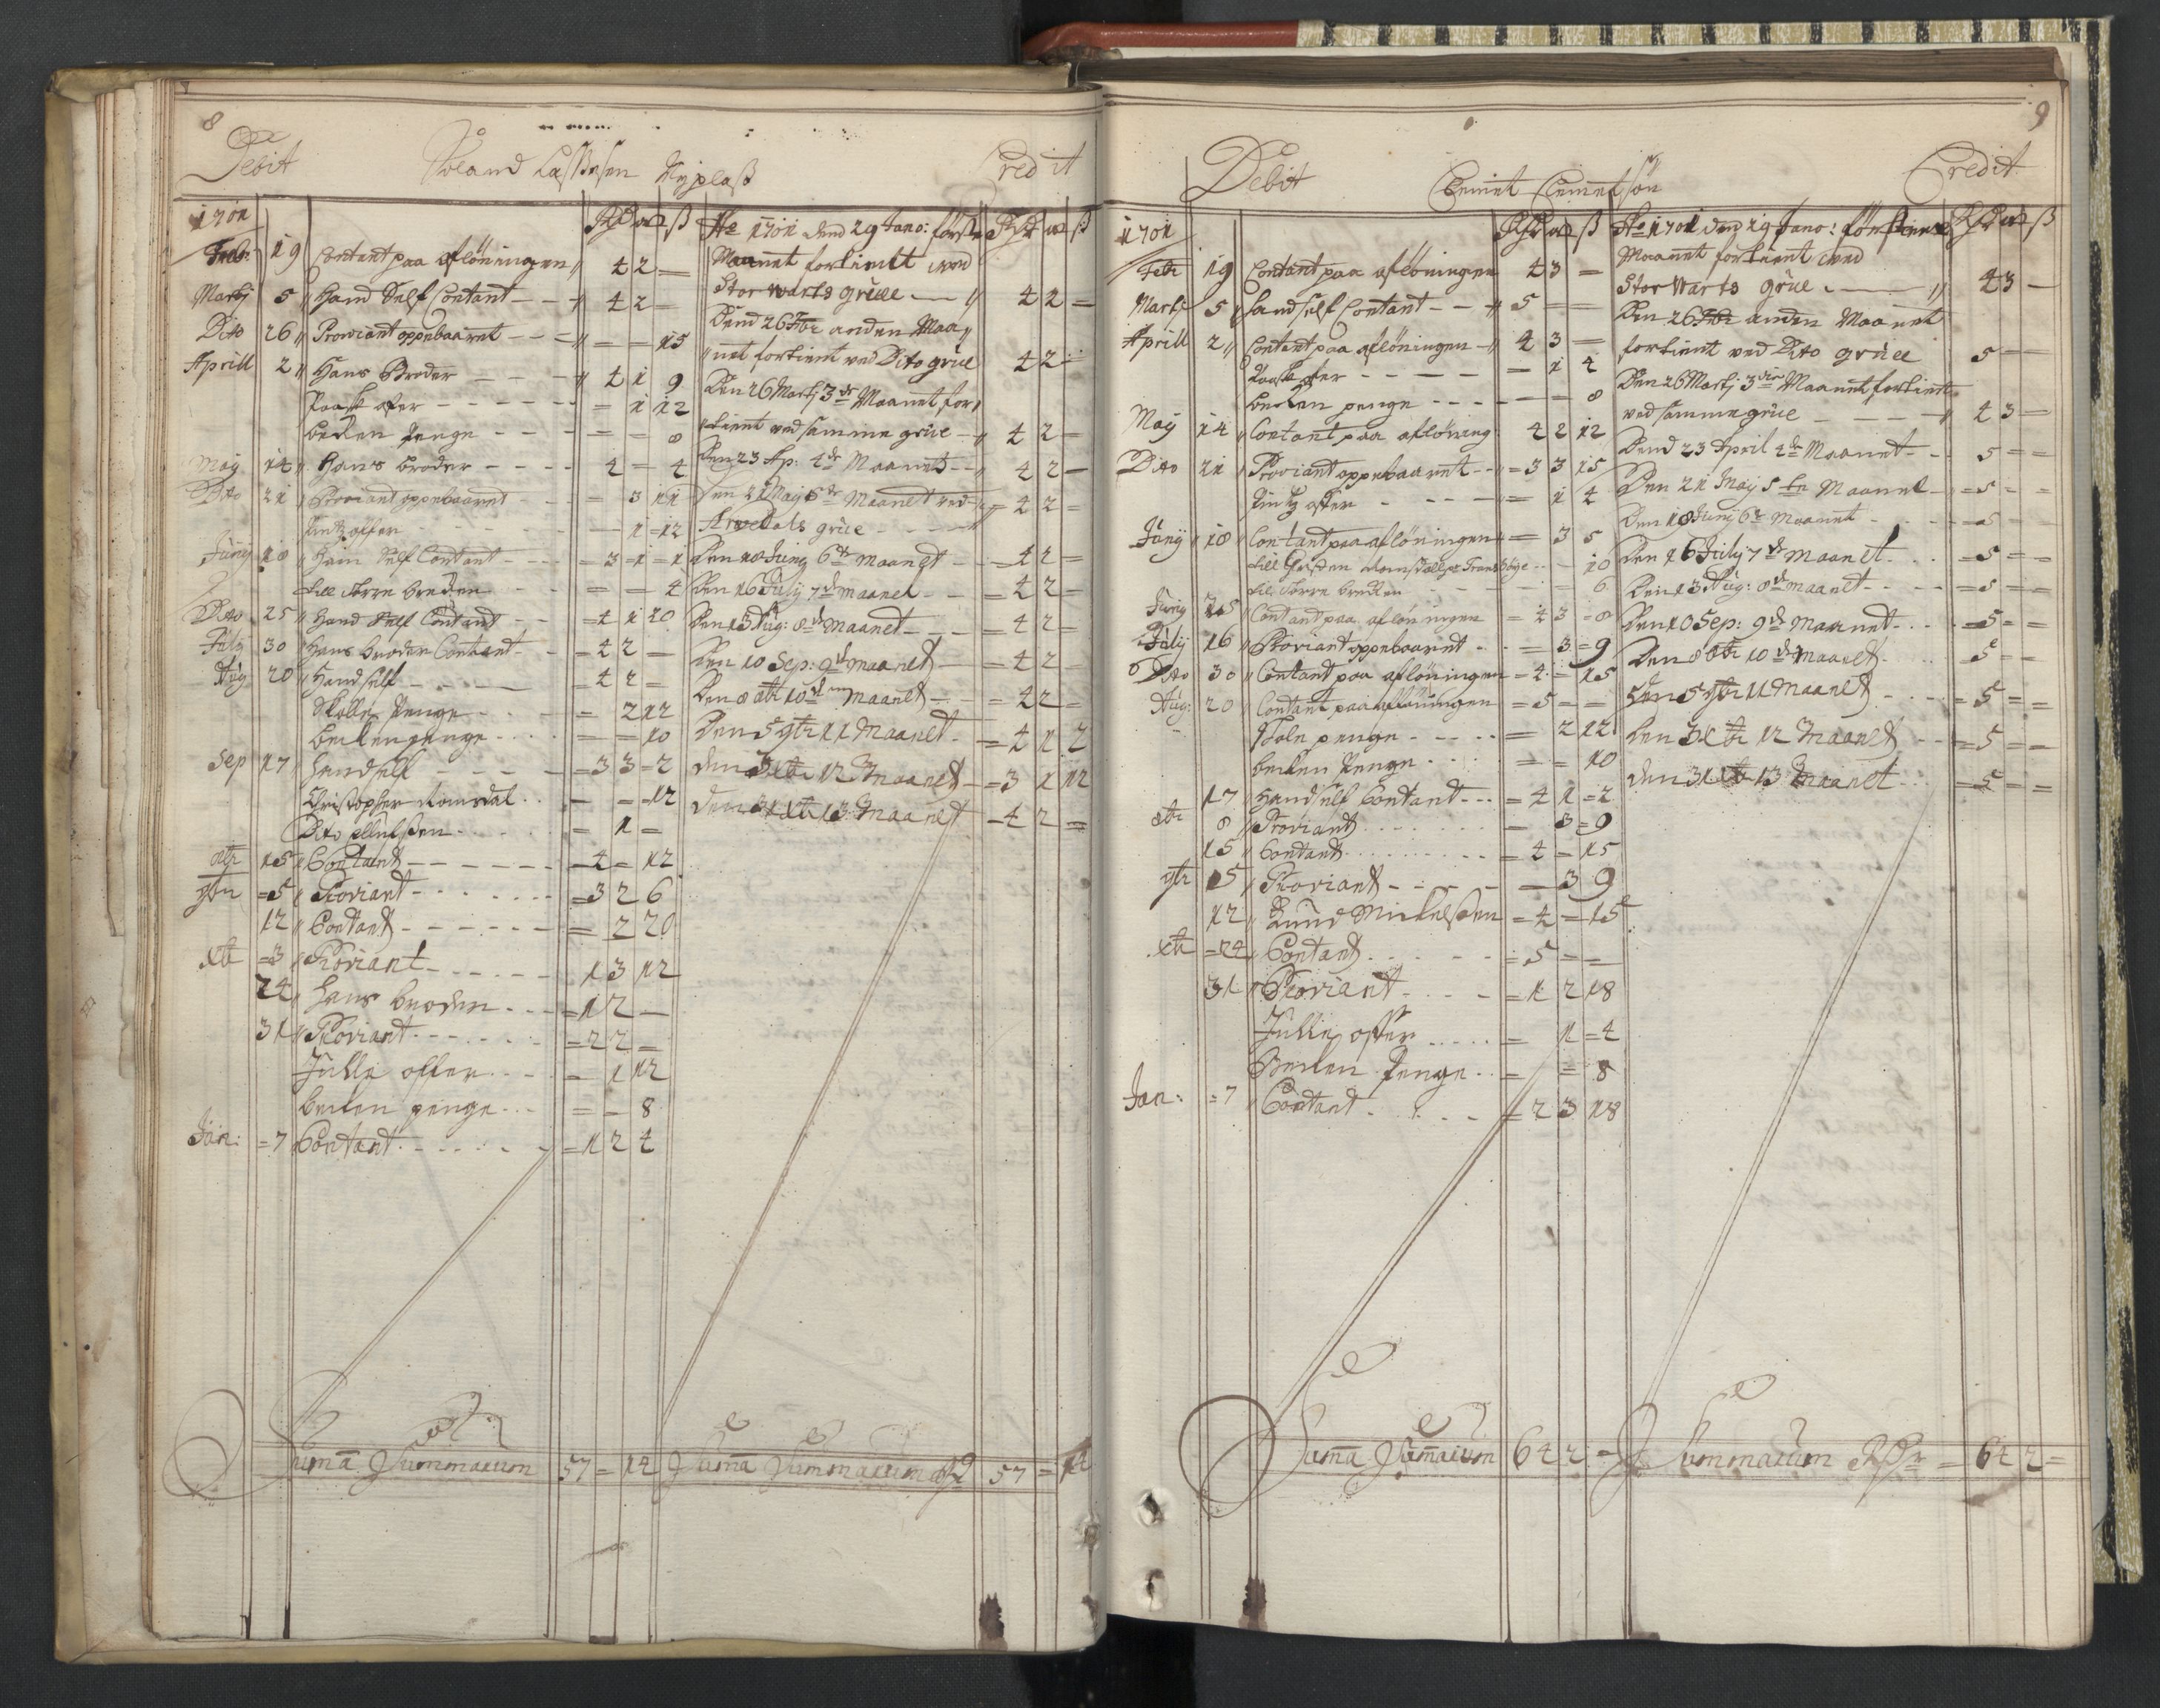 8
Debit Credit
1701 Rdr ort ß
Feb: 19 Contant paa aflöningen 4 2 —
Martj 5 Hand Self Contant 4 2 —
Dito 26 Proviant oppebaaret — — 15
Aprill 2 Hans Broder 4 1 9
Paask ofer — 1 12
Becken Penge — — 8
May 14 Hans broder 4 — 4
Dito 21 Proviant oppebaaret — 3 11
Pintz offer — 1 12
Junij 18 Ham Self Contant 3 1 1
till Torre breden — — 4
Dito 25 Hand Self Contant 4 1 20
July 30 Hans broder Contant 4 2 —
Aug 20 Hand self 4 2 —
Skolle Penge — 2 12
becken penge — — 10
Sep 17 Hand self 3 3 2
Christopher Romsdal — — 12
Dito — 1 —
8tr 15 Contant 4 — 12
9tr 5 Proviant 3 2 6
12 Contant — 2 20
Xtr 3 Proviant 1 3 12
24 Hans broder 1 2 —
31 Proviant 2 2 —
Julle offer — 1 12
becken penge — — 8
Jan: 7 Contant 1 2 4
Suma Summarum 57 = 14
Ao 1701 dend 29 Jano: förste Rdr ort ß
Maanet fortient wed
Stor warts grüe 4 2 —
Dend 26 Febr anden Maa
net fortient ved Dito grüe 4 2
Den 26 Martj 3de Maanet for
tient ved samme grüe 4 2 —
Den 23 Ap: 4de Maanet 4 2 —
Den 21 Maij 5te Maanet ved 4 2 —
Arvedals grüe
Den 18 Junij 6te Maanet 4 2 —
Den 16 July 7de maanet 4 2 —
Den 13 Aug: 8de Maanet 4 2 —
Den 10 Sep: 9de maanet 4 2 —
Den 8 8tr 10de maanet 4 2 —
Den 5 9tr 11 Maanet 4 1 2
den 3 Xtr 12 Maanet 3 1 12
den 31 Xtr 13 Maanet 4 2 =
Suma Summarum 57 = 14
9
Debit Clemet Clemetsön Credit
1701 Rdr ort ß
Feb 19 Contant paa aflöningen 4 3 —
Martj 5 Hand self Contant 5 — —
Aprill 2 Contant paa aflöningen 4 3 —
Paask ofer — 1 4
becken penge — — 8
May 14 Contant paa aflöning 4 2 12
Dito 21 Proviant oppebaaret 3 3 15
Pintz offer — 1 4
Junij 18 Contant paa aflöningen — 3 5
till 10
til Torre breden 6
Junij 25 Contant paa aflöningen 4 3 8
Julij 16 Proviant oppebaaret — 3 9
Dito 30 Contant paa aflöningen 4 — 15
Aug: 20 Contant paa aflöningen 5 — —
Skole penge — 2 12
becken Penge — — 10
17 Hand self Contant 4 1 2
8tr 8 Proviant — 3 9
15 Contant 4 — 15
9tr 5 Proviant — 3 9
12 Knud Mickelssen 4 — 15
Xtr 24 Contant 5 — —
31 Proviant 1 2 18
Julle offer — 1 4
Becken Penge — = 8
Jan: 7 Contant 2 3 18
Suma Sumarum 64 2 =
Ao 1701 den 29 Jano: förstine Rdr ort ß
Maanet fortient wed
Stor Warts grüe 4 3 —
Den 26 Febr anden Maanet
fortient ved Dito grüee 5 — —
Den 26 Martj 3die Maanet fortient
ved samme grüe 4 3 —
Dend 23 April 4de Maanet 5 = =
Den 21 Maij 5te Maanet 5 — —
Den 18 Junij 6te Maanet 5 — —
Den 16 July 7de Maanet 5 — —
Den 13 Aug: 8de maanet 5 — —
Den 10 Sep: 9de Maanet 5 — —
Den 8 8tr 10de maanet 5 — —
Den 5 9tr 11 Maanet 5 = =
Den 3 Xtr 12 Maanet 5 = =
den 31 Xtr 13 Maanet 5 = =
Summarum Rdr 64 2 =